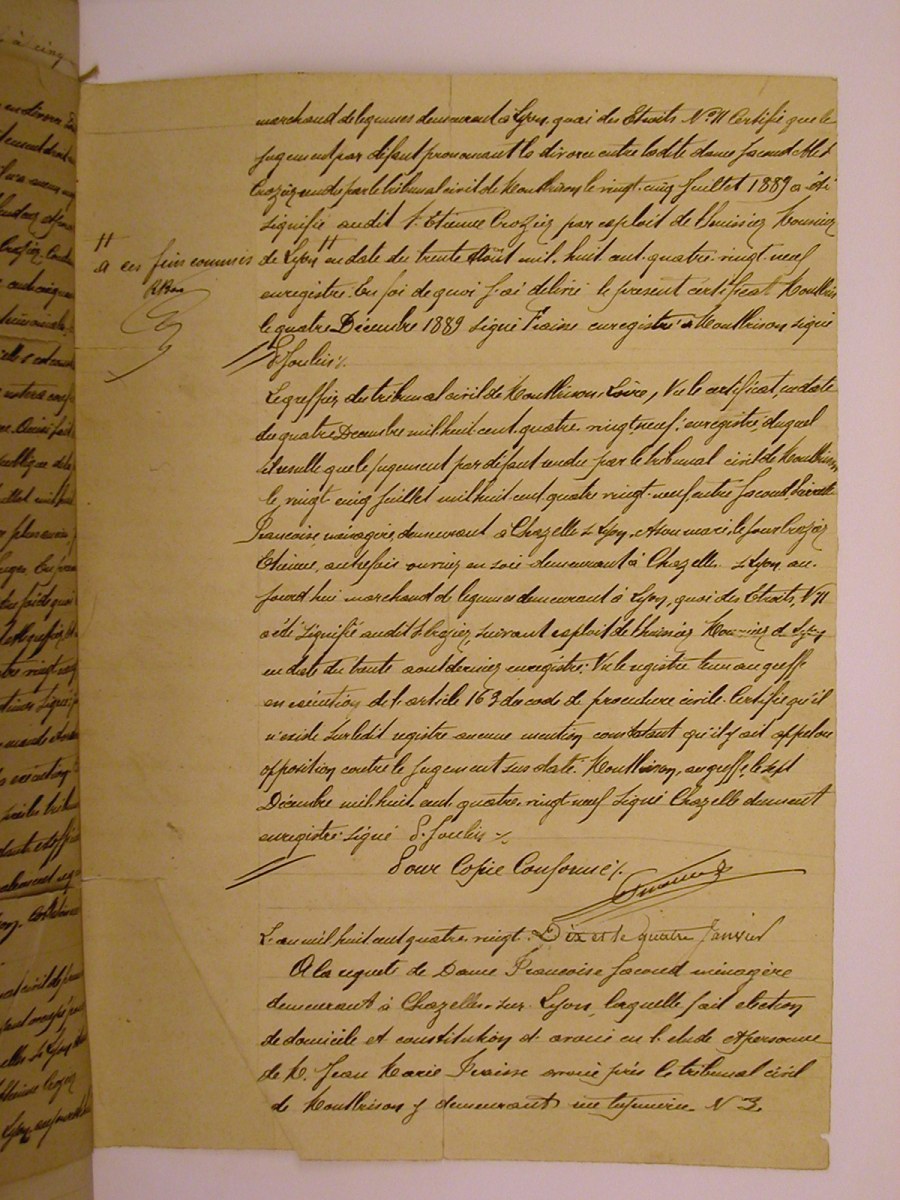 marchand de légumes demeurant à Lyon, quai des Etroits N° 11 Certifie que le
jugement par défaut prononçant le divorce entre ladite dame Jacoud et les
Crozier rendu par le tribunal civil de Montbrison le vingt cinq Juillet 1889 a été
signifié audit S. Etienne Crozier par exploit de l'huissier Mounier
de Lyon # en date du trente Août mil huit cent quatre vingt neuf
#
à ces fins commis
enregistré. En foi de quoi j'ai délivré le présent certificat Montbrison
le quatre Décembre 1889 signé Fraisse enregistré à Montbrison signé
Joulin /.
Le greffier du tribunal civil de Montbrison, Loire, Vu le certificat, en date
du quatre Décembre mil huit cent quatre vingt neuf, enregistré, duquel
il résulte que le jugement par défaut rendu par le tribunal civil de Montbrison
le vingt cinq juillet mil huit cent quatre vingt neuf entre Jacoud
Francoise, ménagère, demeurant à Chazelle s Lyon, et son mari, le sieur Crozier
Etienne, autrefois ouvrier en soie demeurant à Chazelle s Lyon, au-
jourd'hui marchand de légumes demeurant à Lyon, quai des Etroits, N° 11
a été signifié audit S. Crozier, suivant exploit de l'huissier Mounier d Lyon
en date du trente août dernier enregistré: Vu le registre tenu au greffe
en exécution de l'article 163 du code de procédure civile. Certifie qu'il
n'existe sur ledit registre aucune mention constatant qu'il y ait appel ou
opposition contre le jugement sus daté. Montbrison, au greffe, le sept
Décembre mil huit cent quatre vingt neuf signé Chazelle dument
enregistré signé Joulin /.
Pour Copie Conforme /.
L'an mil huit cent quatre vingt. Dix et le quatre Janvier
A la requete de Dame Francoise Jacoud ménagère
demeurant à Chazelles-sur Lyon, laquelle fait election
de domicile et constitution d'avoué en l'etude et personne
de M. Jean Marie Fraisse avoué près le tribunal civil
de Montbrison y demeurant rue N° 3,